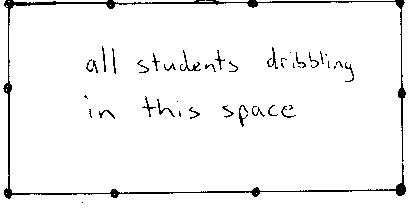 all students dribbling
in this space